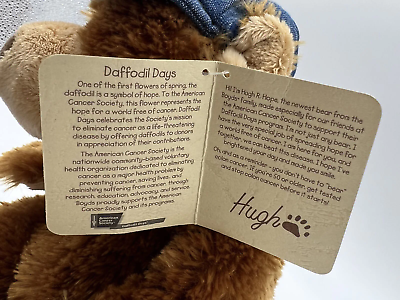 Daffodil Days
One of the first flowers of spring, the
daffodil is a symbol of hope. To the American
Cancer Society, this flower represents the
hope for a world free of cancer. Daffodil
Days celebrates the Society's mission
to eliminate cancer as a life-threatening
disease by offering daffodils to donors
in appreciation of their contributions.
The American Cancer Society is the
nationwide community-based voluntary
health organization dedicated to eliminating
cancer as a major health problem by
preventing cancer, saving lives, and
diminishing suffering from cancer, through
research, education, advocacy, and service.
Boyds proudly supports the American
Cancer Society and its programs.
American
Cancer
Society
Hi! I'm Hugh R. Hope, the newest bear from the
Boyds family, made especially for our friends at
the American Cancer Society to support their
Daffodil Days program. I'm not just any bear, I
have the very special job of spreading hope for
a world free of cancer. I am here for you, and
together, we can beat this disease. I hope I've
brightened your day and made you smile.
Oh, and as a reminder - you don't have to "bear"
colon cancer. If you're 50 or older, get tested
and stop colon cancer before it starts!
Hugh